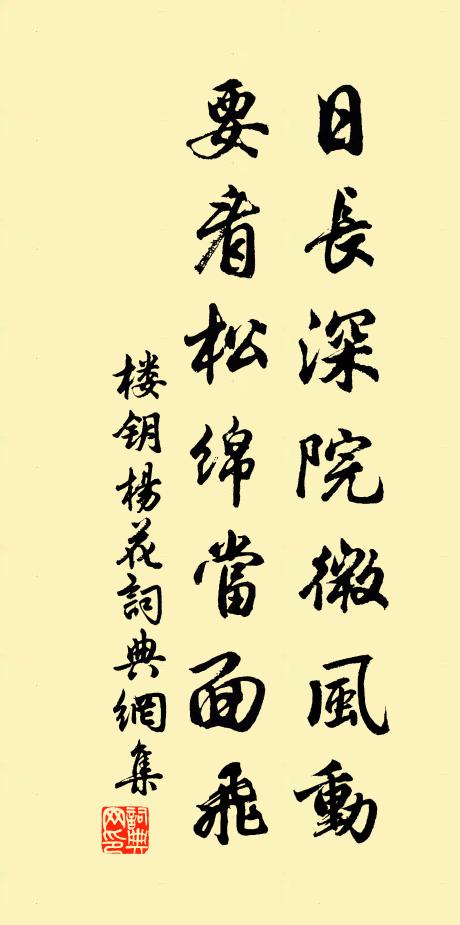 日長深院微風動
要看松綿當面飛
楼钥楊花詞典網集
詞典網印